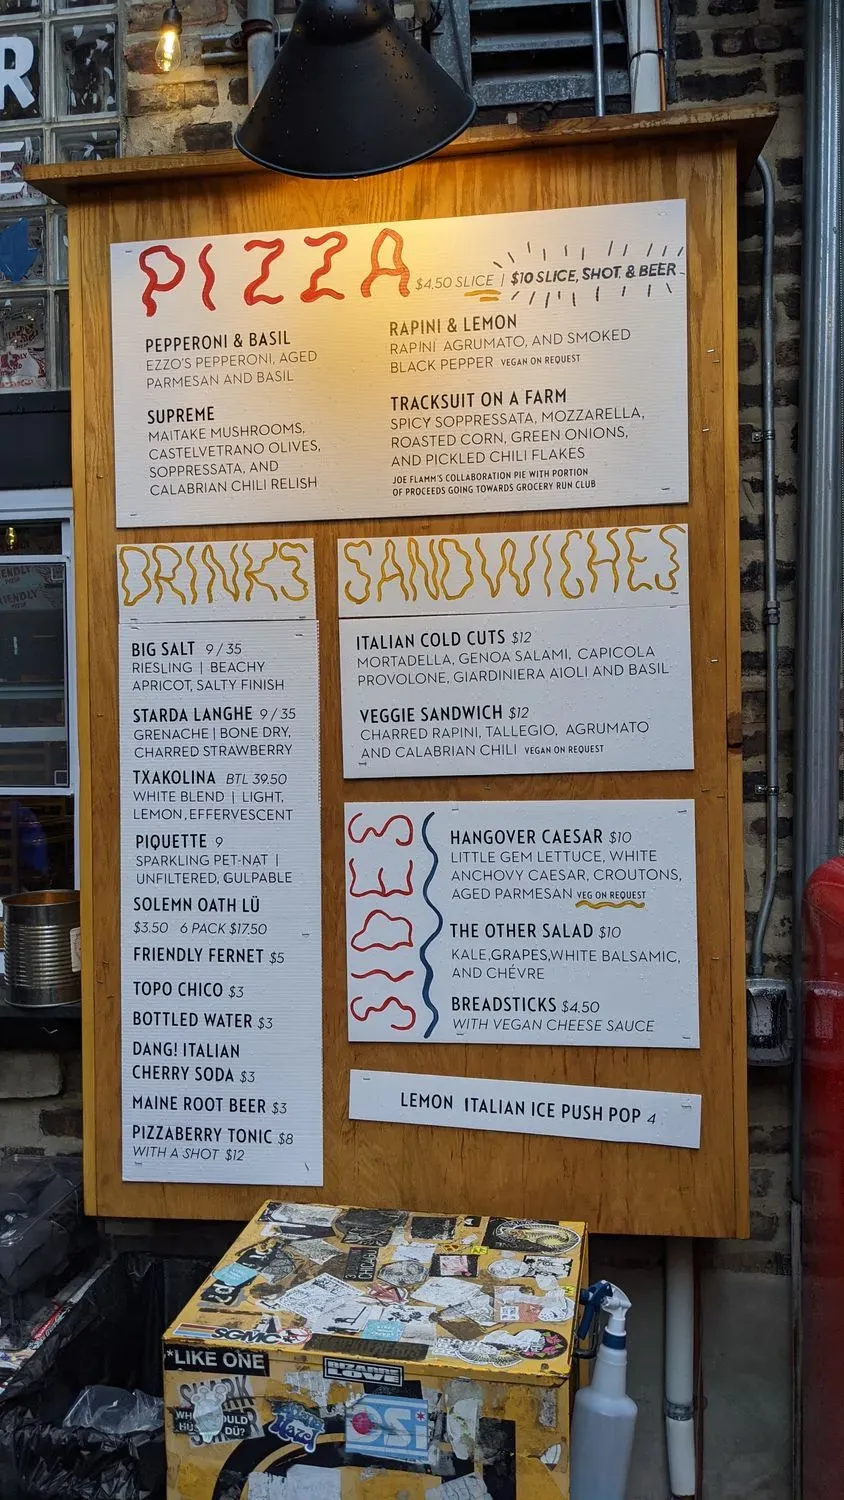 R
E
PIZZA $4.50 SLICE | $10 SLICE, SHOT, & BEER
PEPPERONI & BASIL
EZZO'S PEPPERONI, AGED
PARMESAN AND BASIL
SUPREME
MAITAKE MUSHROOMS,
CASTELVETRANO OLIVES,
SOPPRESSATA, AND
CALABRIAN CHILI RELISH
RAPINI & LEMON
RAPINI AGRUMATO, AND SMOKED
BLACK PEPPER VEGAN ON REQUEST
TRACKSUIT ON A FARM
SPICY SOPPRESSATA, MOZZARELLA,
ROASTED CORN, GREEN ONIONS,
AND PICKLED CHILI FLAKES
JOE FLAMM'S COLLABORATION PIE WITH PORTION
OF PROCEEDS GOING TOWARDS GROCERY RUN CLUB
DRINKS
BIG SALT 9/35
RIESLING | BEACHY
APRICOT, SALTY FINISH
STARDA LANGHE 9/35
GRENACHE | BONE DRY,
CHARRED STRAWBERRY
TXAKOLINA BTL 39.50
WHITE BLEND | LIGHT,
LEMON, EFFERVESCENT
PIQUETTE 9
SPARKLING PET-NAT |
UNFILTERED, GULPABLE
SOLEMN OATH LÜ
$3.50 6 PACK $17.50
FRIENDLY FERNET $5
TOPO CHICO $3
BOTTLED WATER $3
DANG! ITALIAN
CHERRY SODA $3
MAINE ROOT BEER $3
PIZZABERRY TONIC $8
WITH A SHOT $12
SANDWICHES
ITALIAN COLD CUTS $12
MORTADELLA, GENOA SALAMI, CAPICOLA
PROVOLONE, GIARDINIERA AIOLI AND BASIL
VEGGIE SANDWICH $12
CHARRED RAPINI, TALLEGIO, AGRUMATO
AND CALABRIAN CHILI VEGAN ON REQUEST
SIDES
HANGOVER CAESAR $10
LITTLE GEM LETTUCE, WHITE
ANCHOVY CAESAR, CROUTONS,
AGED PARMESAN VEG ON REQUEST
THE OTHER SALAD $10
KALE,GRAPES,WHITE BALSAMIC,
AND CHÉVRE
BREADSTICKS $4.50
WITH VEGAN CHEESE SAUCE
LEMON ITALIAN ICE PUSH POP 4
SGMC
*LIKE ONE
BIZARRE
LOVE
CHICAGO
OSi